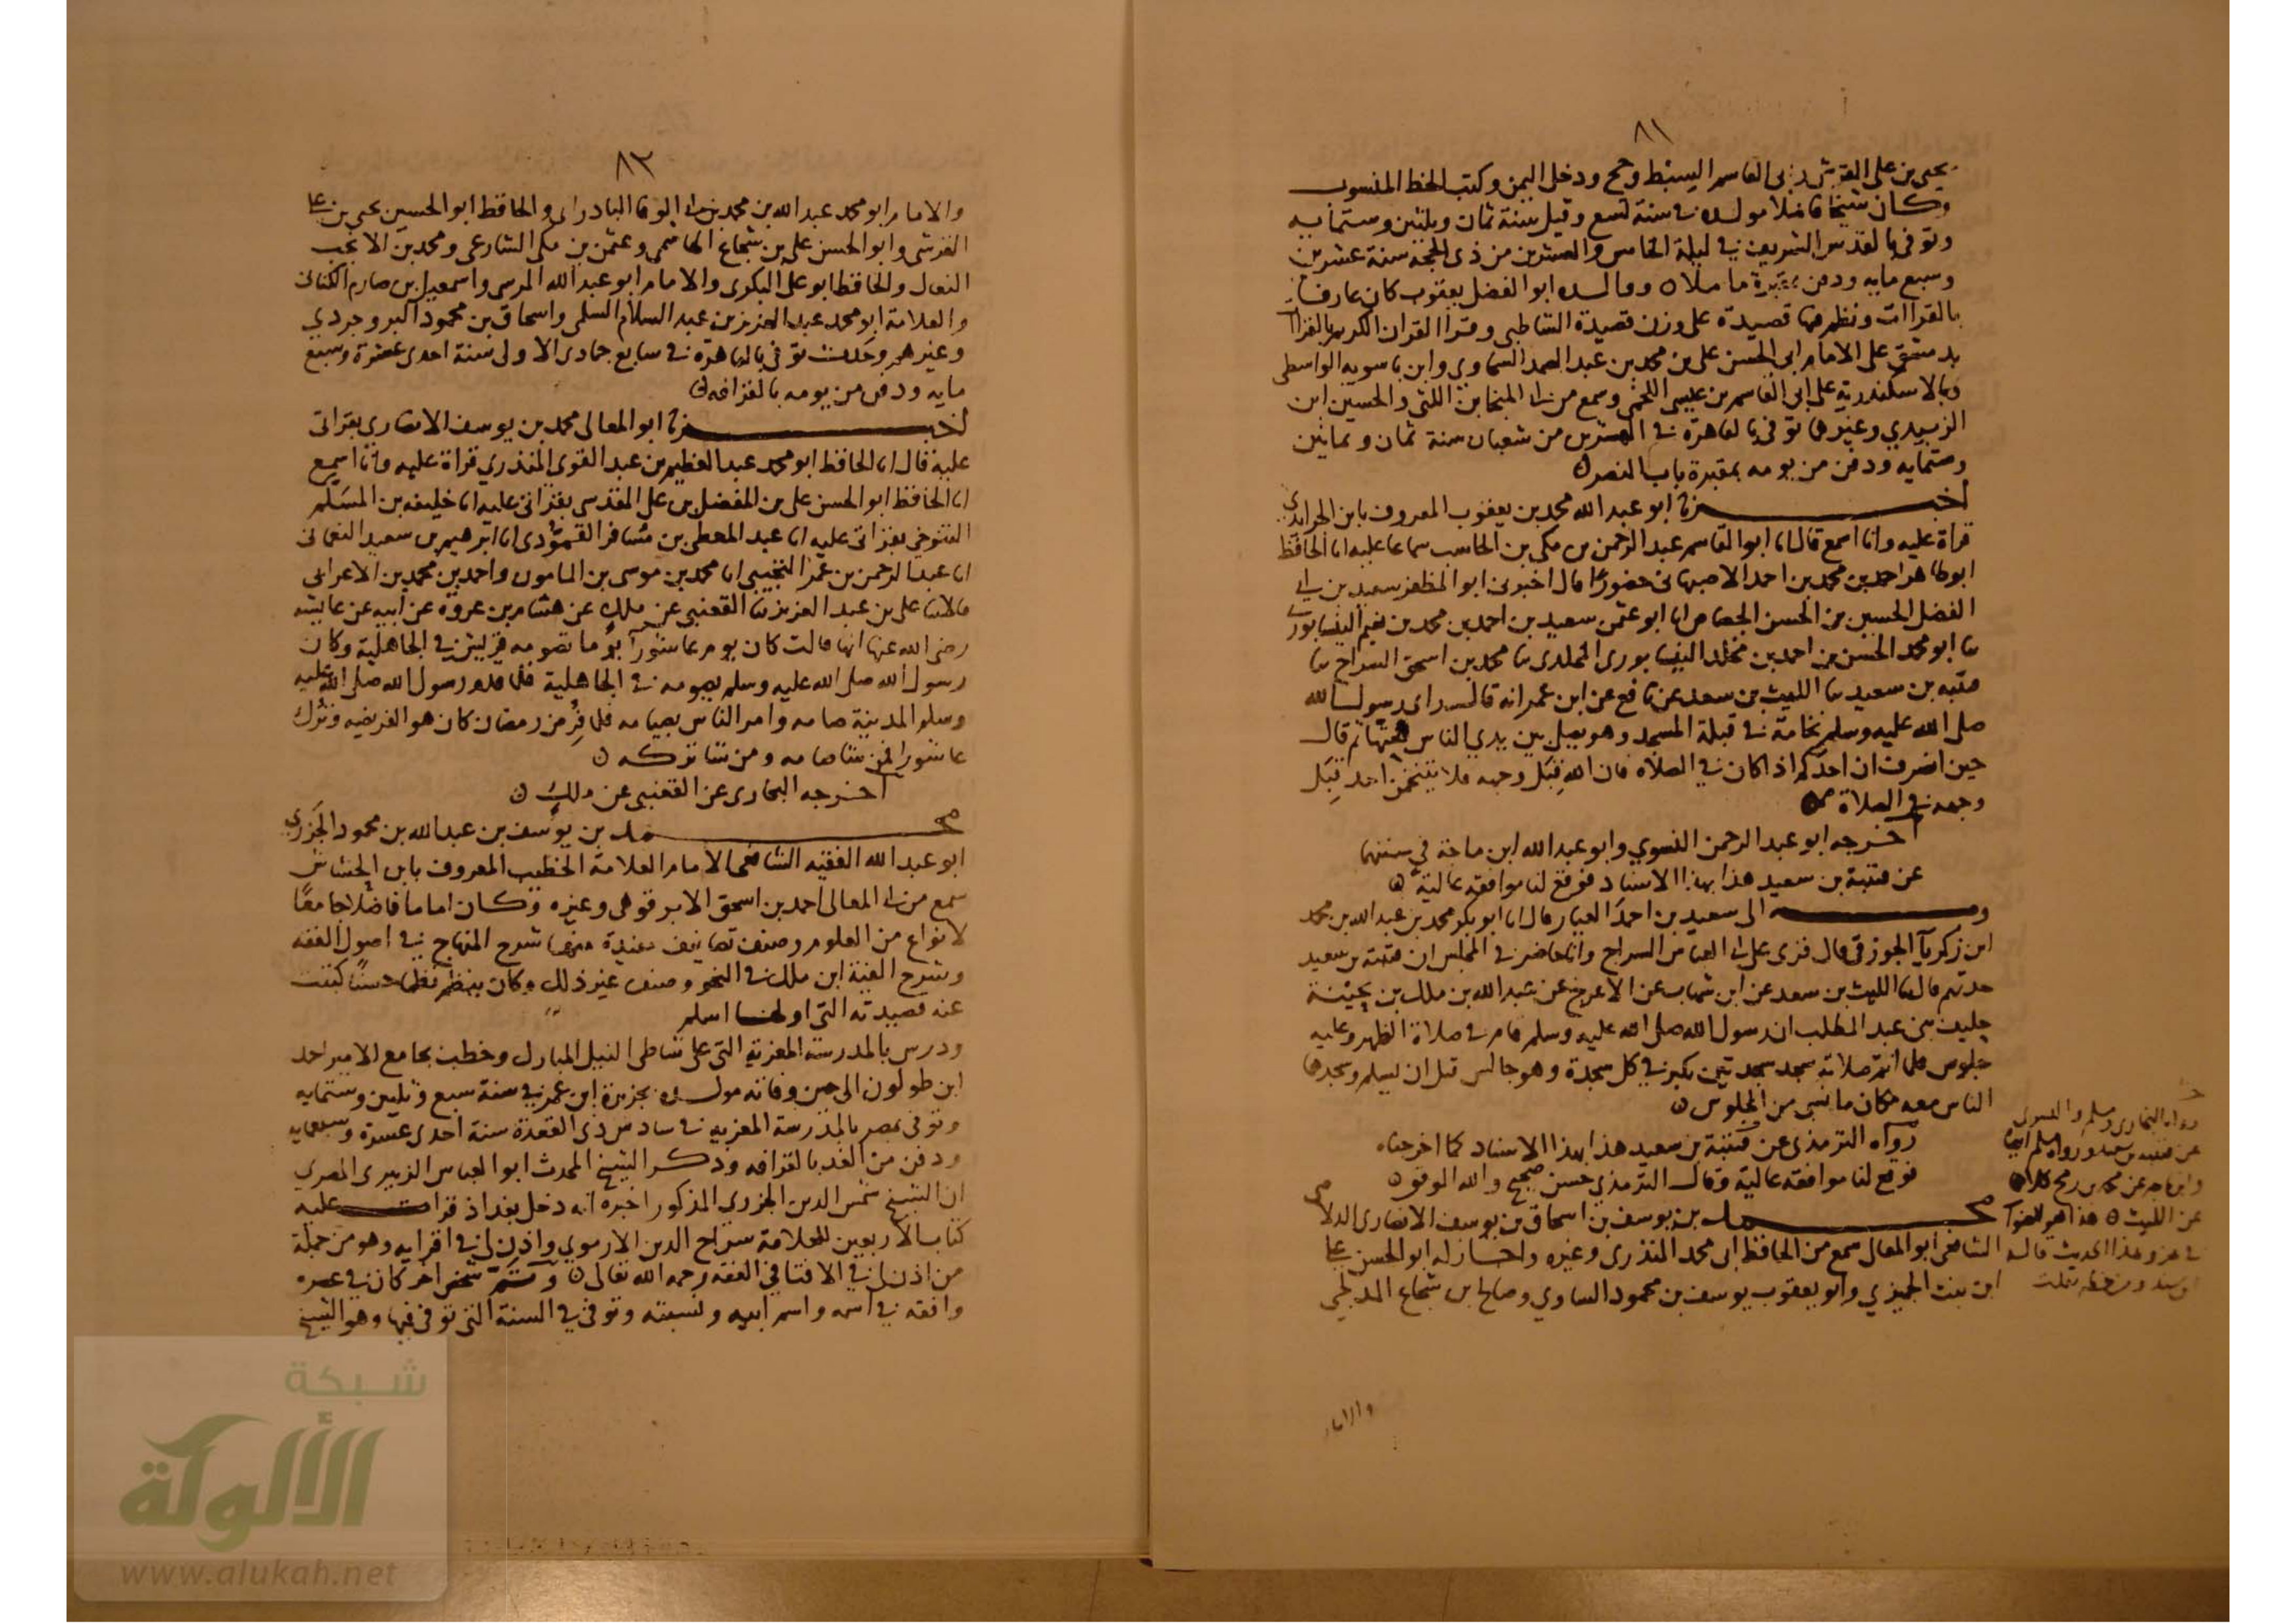 ٨١
يحيى بن على القرشى وابى القاسم السبط وحج ودخل اليمن وكتب الخط المنسوب
وكان شيخا فاضلا مولده فى سنة تسع وقيل سنة ثمان وثلثين وستمايه
وتوفى بالقدس الشريف فى ليلة الخامس والعشرين من ذى الحجه سنة عشرين
وسبع مايه ودفن بمقبرة ماملا ه ووالده ابو الفضل يعقوب كان عارفا
بالقراات ونظم فيها قصيدة على وزن قصيدة الشاطبى وقرا القران الكريم بالقراات
بدمشق على الامام ابى الحسن على بن محمد بن عبد الصمد السخاوي وابن باسويه الواسطى
وبالاسكندرية على ابى القاسم بن عيسى اللخمى وسمع من ابى المنجا بن اللتى والحسين ابن
الزبيدي وغيرهما توفى بالقاهرة فى العشرين من شعبان سنة ثمان وثمانين
وستمايه ودفن من يومه بمقبرة باب النصر ه
اخبرنا ابو عبد الله محمد بن يعقوب المعروف بابن الجرايدى
قراة عليه وانا اسمع قال انا ابو القاسم عبد الرحمن بن مكى بن الحاسب سماعا عليه انا الحافظ
ابو طاهر احمد بن محمد بن احمد الاصبهانى حضورا قال اخبرنى ابو المظفر سعيد بن ابى
الفضل الحسين بن الحسن الجصاص انا ابو عثمن سعيد بن احمد بن محمد بن نعيم النيسابورى
نا ابو محمد الحسن بن احمد بن مخلد النيسابورى المخلدى نا محمد بن اسحق السراج نا
قتيبه بن سعيد نا الليث بن سعد عن نافع عن ابن عمر انه قال راى رسول الله
صلى الله عليه وسلم نخامة فى قبلة المسجد وهو يصلى بين يدي الناس فحتها ثم قال
حين انصرف ان احدكم اذا كان فى الصلاه فان الله قِبَل وجهه فلا يتنخمن احد قِبَل
وجهه فى الصلاة ه
اخرجه ابو عبد الرحمن النسوي وابو عبد الله ابن ماجة في سننهما
عن قتيبة بن سعيد هذا بهذا الاسناد فوقع لنا موافقه عالية ه
وبه الى سعيد بن احمد العيار قال انا ابو بكر محمد بن عبد الله بن محمد
ابن زكريآ الجوزقى قال قرى على ابى العباس السراج وانا حاضر فى المجلس ان قتيبة بن سعيد
حدثهم قال نا الليث بن سعد عن ابن شهاب عن الاعرج عن عبد الله بن ملك بن بحينة
حليف بنى عبد المطلب ان رسول الله صلى الله عليه وسلم قام فى صلاة الظهر وعليه
جلوس فلما اتم صلاته سجد سجدتين يكبر فى كل سجدة وهو جالس قبل ان يسلم وسجدها
الناس معه مكان ما نسى من الجلوس ه
رواه الترمذى عن قتيبة بن سعيد هذا بهذا الاسناد كما اخرجناه
فوقع لنا موافقة عالية وقال الترمذي حسن صحيح والله الموفق ه
محمد بن يوسف بن اسحاق بن يوسف الانصارى الدلاصى
الشافعى ابو المعالى سمع من الحافظ ابى محمد المنذرى وغيره واجاز له ابو الحسن على
ابن بنت الجميزي وابو يعقوب يوسف بن محمود الساوي وصالح بن شجاع المدلجى
رواه البخارى ومسلم والنسوى
عن قتيبه بن سعيد ورواه مسلم ايضا
وابن ماجه عن محمد بن رمح كلاهما
عن الليث ه هذا هو الصواب
فى عزو هذا الحديث قاله
والامام
٨٢
والامام ابو محمد عبد الله بن محمد بن ابى الوفا البادراى والحافظ ابو الحسين يحيى بن على
القرشى وابو الحسن على بن شجاع الهاشمى وعثمن بن مكى الشارعى ومحمد بن الانجب
النعال والحافظ ابو على البكرى والامام ابو عبد الله المرسى واسمعيل بن صارم الكنانى
والعلامة ابو محمد عبد العزيز بن عبد السلام السلمى واسحاق بن محمود البروجردي
وغيرهم وحدث توفى بالقاهرة فى سابع جمادى الاولى سنة احدى عشرة وسبع
مايه ودفن من يومه بالقرافه ه
اخبرنا ابو المعالى محمد بن يوسف الانصاري بقراتى
عليه قال انا الحافظ ابو محمد عبد العظيم بن عبد القوى المنذري قراة عليه وانا اسمع
انا الحافظ ابو الحسن على بن المفضل بن على المقدسى بقراتى عليه انا خليفه بن المسَلَّم
التنوخى بقراتى عليه انا عبد المعطى بن مسافر القَمُّودى انا ابرهيم بن سعيد النعمانى
انا عبد الرحمن بن عمر التجيبى انا محمد بن موسى بن المامون واحمد بن محمد بن الاعرابى
قالا نا على بن عبد العزيز نا القعنبى عن ملك عن هشام بن عروه عن ابيه عن عايشه
رضى الله عنها انها قالت كان يوم عاشورآ يومًا تصومه قريش فى الجاهلية وكان
رسول الله صلى الله عليه وسلم يصومه فى الجاهلية فلما قدم رسول الله صلى الله عليه
وسلم المدينة صامه وامر الناس بصيامه فلما فُرض رمضان كان هو الفريضه وتُرك
عاشورا فمن شا صامه ومن شا تركه ه
اخرجه البخارى عن القعنبى عن ملك ه
محمد بن يوسف بن عبد الله بن محمود الجَزَري
ابو عبد الله الفقيه الشافعى الامام العلامة الخطيب المعروف بابن الحشاش
سمع من ابى المعالى احمد بن اسحق الابرقوهى وغيره وكان اماما فاضلا جامعًا
لانواع من العلوم وصنف تصانيف مفيدة منها شرح المنهاج فى اصول الفقه
وشرح الفية ابن ملك فى النحو وصنف غير ذلك وكان ينظم نظما حسنًا كتبت
عنه قصيدته التى اولها اسلم
ودرس بالمدرسة المعزية التى على شاطى النيل المبارك وخطب بجامع الامير احمد
ابن طولون الى حين وفاته مولده بجزيرة ابن عمر فى سنة سبع وثلثين وستمايه
وتوفى بمصر بالمدرسة المعزيه فى سادس ذى القعدة سنة احدى عشرة وسبعمايه
ودفن من الغد بالقرافه وذكر الشيخ المحدث ابو العباس الزبيرى المصري
ان الشيخ شمس الدين الجزري المذكور اخبره انه دخل بغداذ قرات عليه
كتاب الاربعين للعلامة سراج الدين الارموي واذن لى فى اقرايه وهو من جملة
من اذن لى فى الافتا فى الفقه رحمه الله تعالى ه وثَمَّ شخص اخر كان فى عصره
وافقه فى اسمه واسم ابيه ونسبته وتوفى فى السنة التى توفى فيها وهو الشيخ
شبكة
الألوكة
www.alukah.net